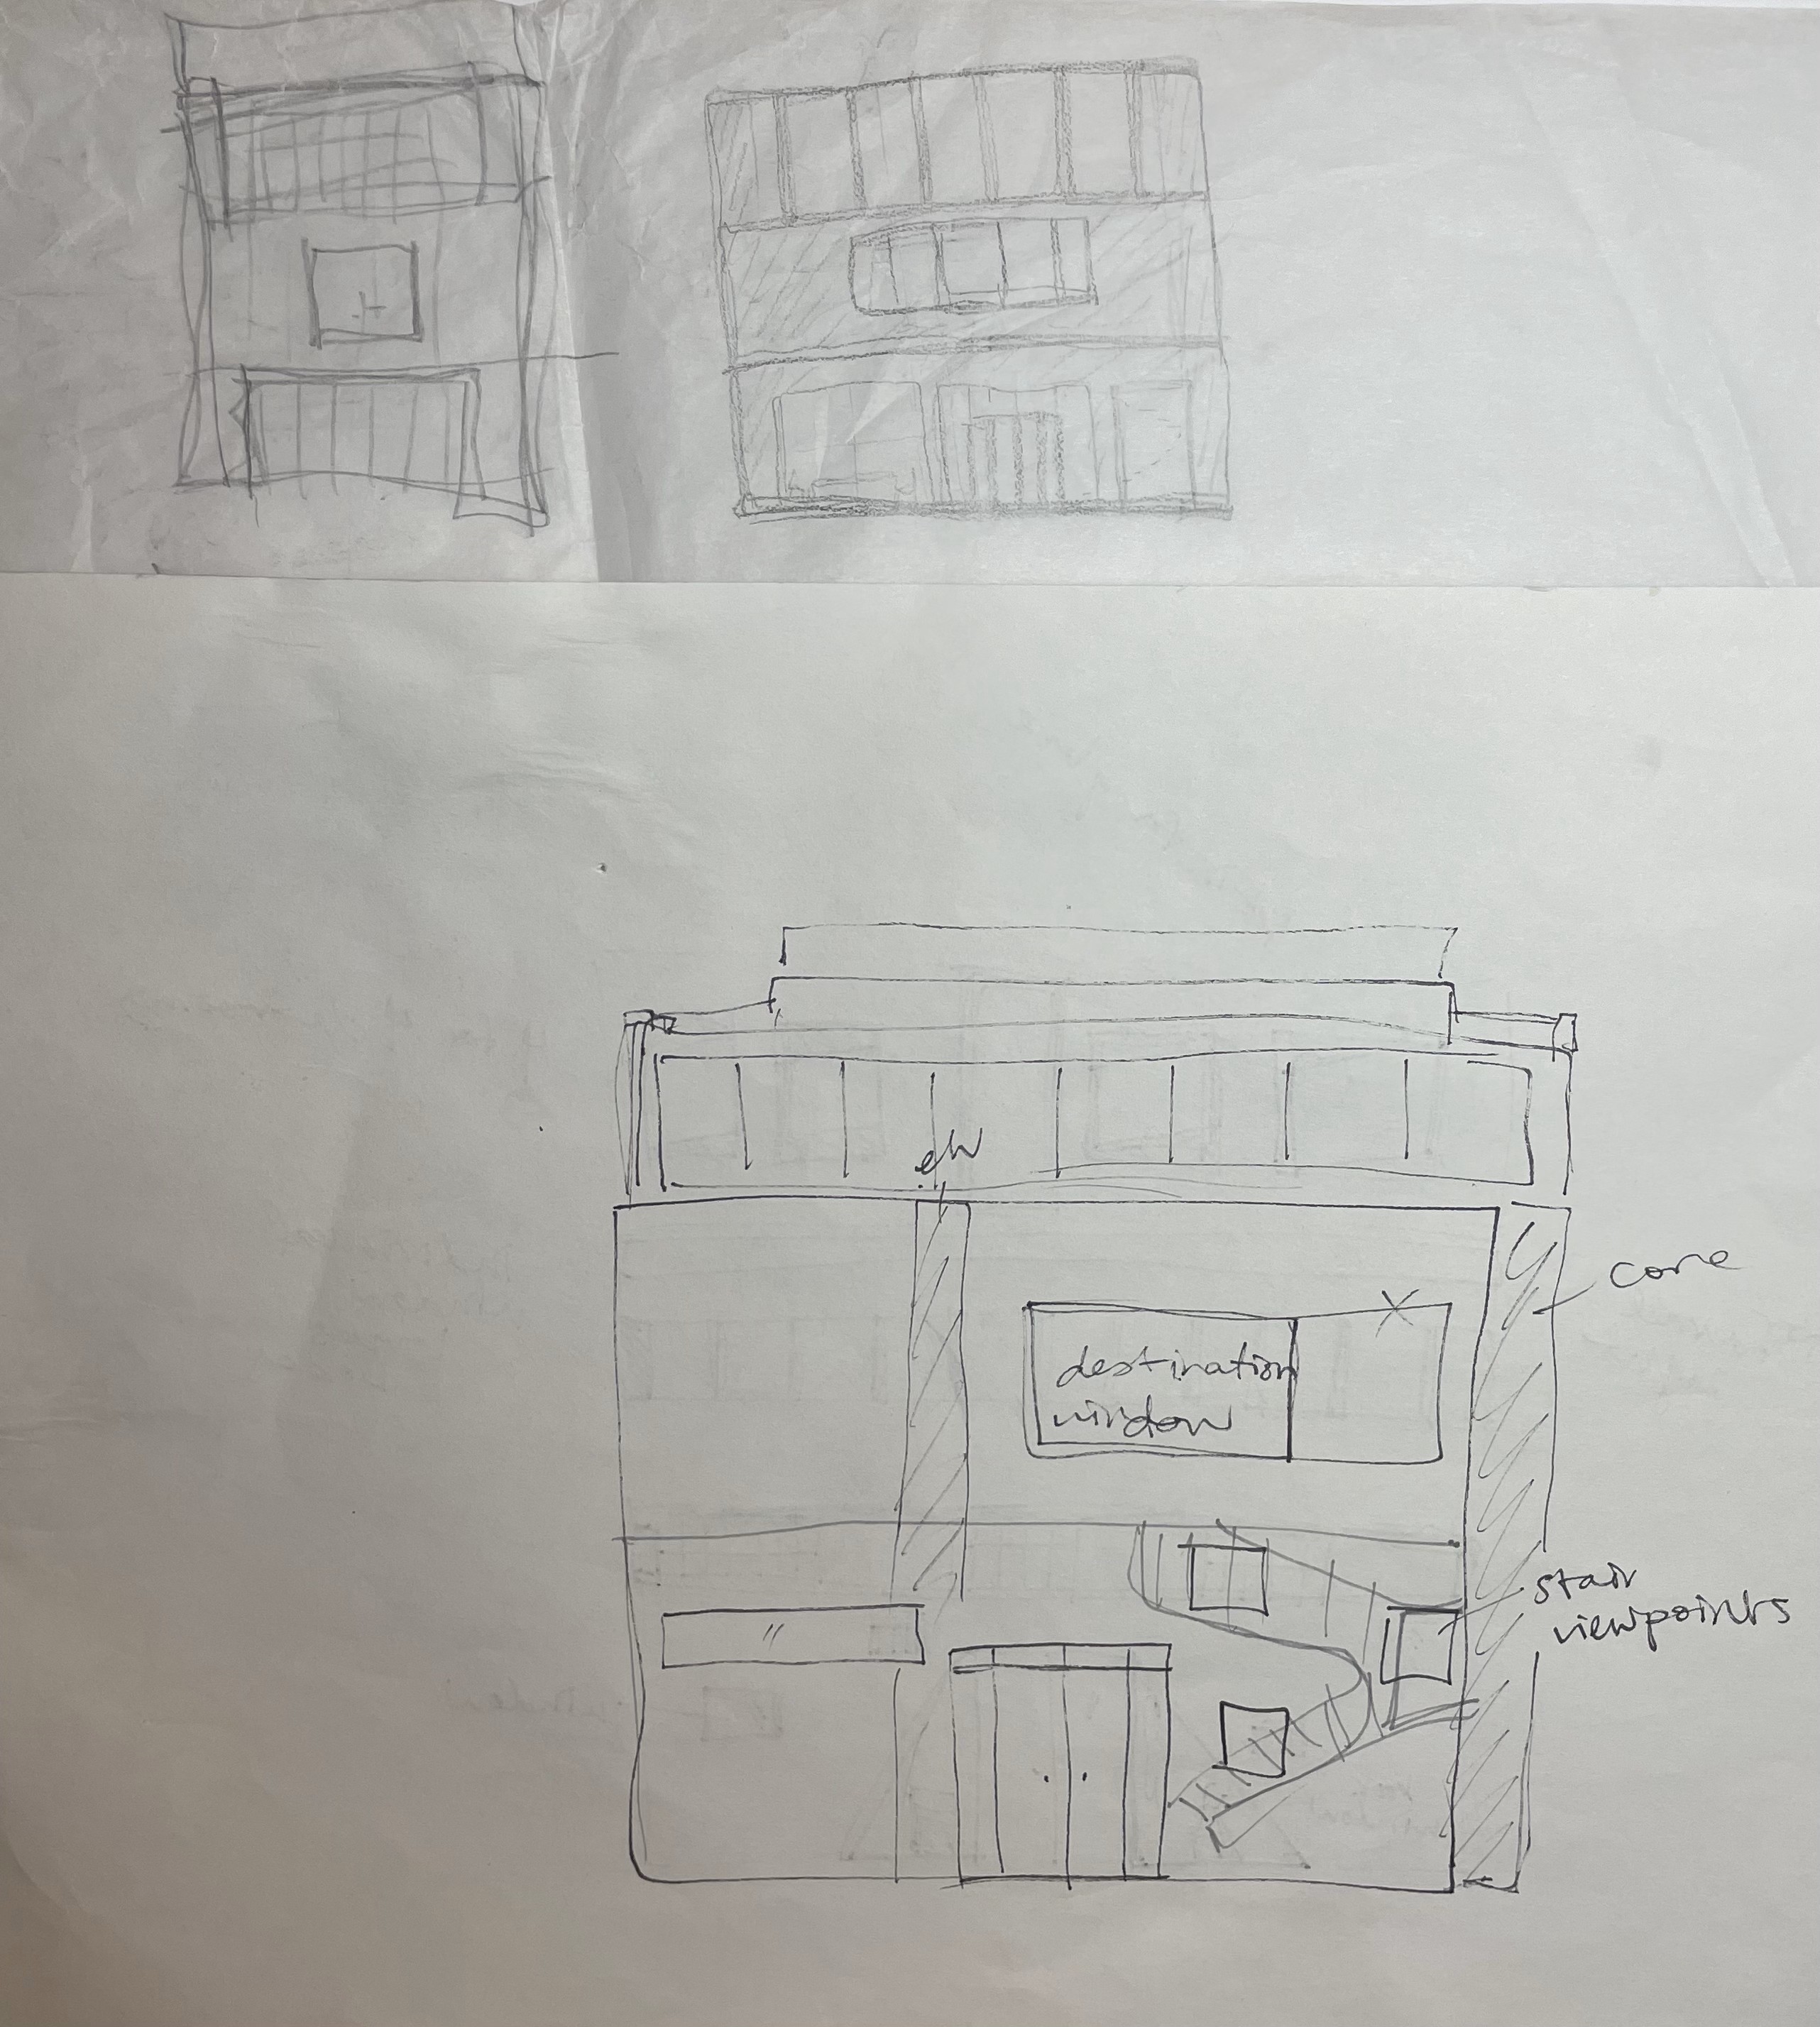 core
destination
window
stair
viewpoints